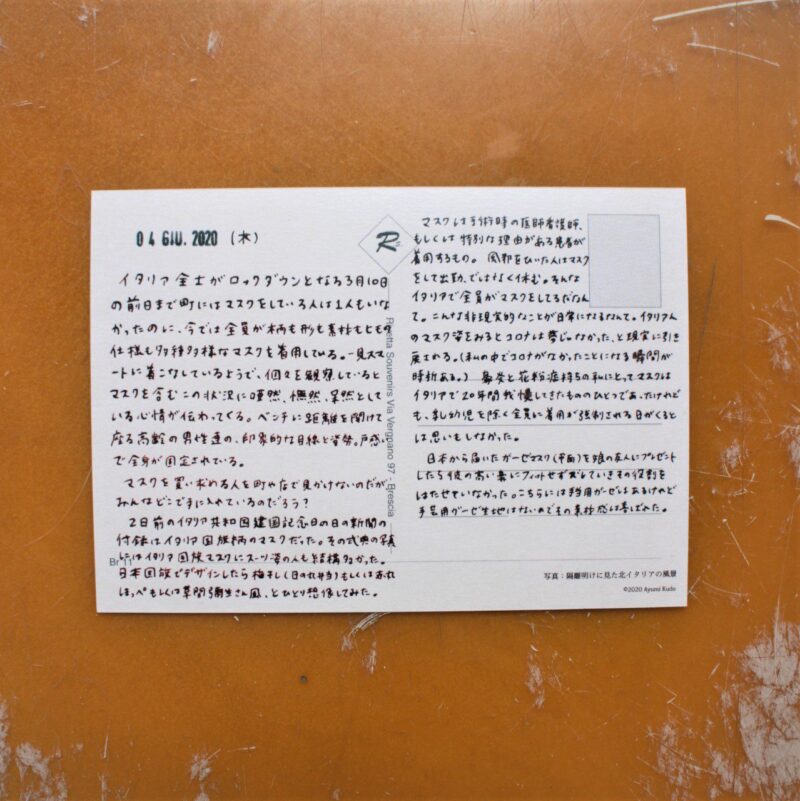 04 GIU. 2020 (木)
イタリア全土がロックダウンとなる3月10日
の前日まで町にはマスクをしている人は1人もいな
かったのに、今では全員が柄も形も素材もともの
仕様も多種多様なマスクを着用している。一見スマ
ートに着こなしているようで、個々を観察していると
マスクを含むこの状況に唖然、憮然、呆然とし
ている心情が伝わってくる。ベンチに距離を開けて
座る高齢の男性達の、印象的な目線と姿勢。戸惑い
で全身が固定されている。
マスクを買い求める人を町や店で見かけないのだが
みんなどこで手に入れているのだろう?
2日前のイタリア共和国建国記念日の日の新聞の
付録はイタリア国旗柄のマスクだった。その式典の写真
にはイタリア国旗マスクにスーツ姿の人も結構多かった。
日本国旗でデザインしたら梅干し(日の丸弁当)もしくは赤丸
ほっぺもしくは草間彌生さん風、とひとり想像してみた。
Br 11
R
Rivetta Souvenirs Via Vergnano 97 Brescia
マスクは手術時の医師看護師、
もしくは特別な理由がある患者が
着用するもの。風邪をひいた人はマスク
をして出勤、ではなく休む。そんな
イタリアで全員がマスクをしてるだなん
て。こんな非現実的なことが日常になるなんて。イタリア人
のマスク姿をみるとコロナは夢じゃなかった、と現実に引き
戻される。(私の中でコロナがなかったことになる瞬間が
時折ある。) 鼻炎と花粉症持ちの私にとってマスクは
イタリアで20年間我慢してきたもののひとつであったけれど
も、乳幼児を除く全員に着用が強制される日がくると
は思いもしなかった。
日本から届いたガーゼマスク(平面)を娘の友人にプレゼント
したら彼の高い鼻にフィットせずズレていきその役割を
はたせていなかった。こちらには医療用ガーゼはあるけれど
手芸用ガーゼ生地はないのでその素材感は喜ばれた。
写真：隔離明けに見た北イタリアの風景
©2020 Ayumi Kudo